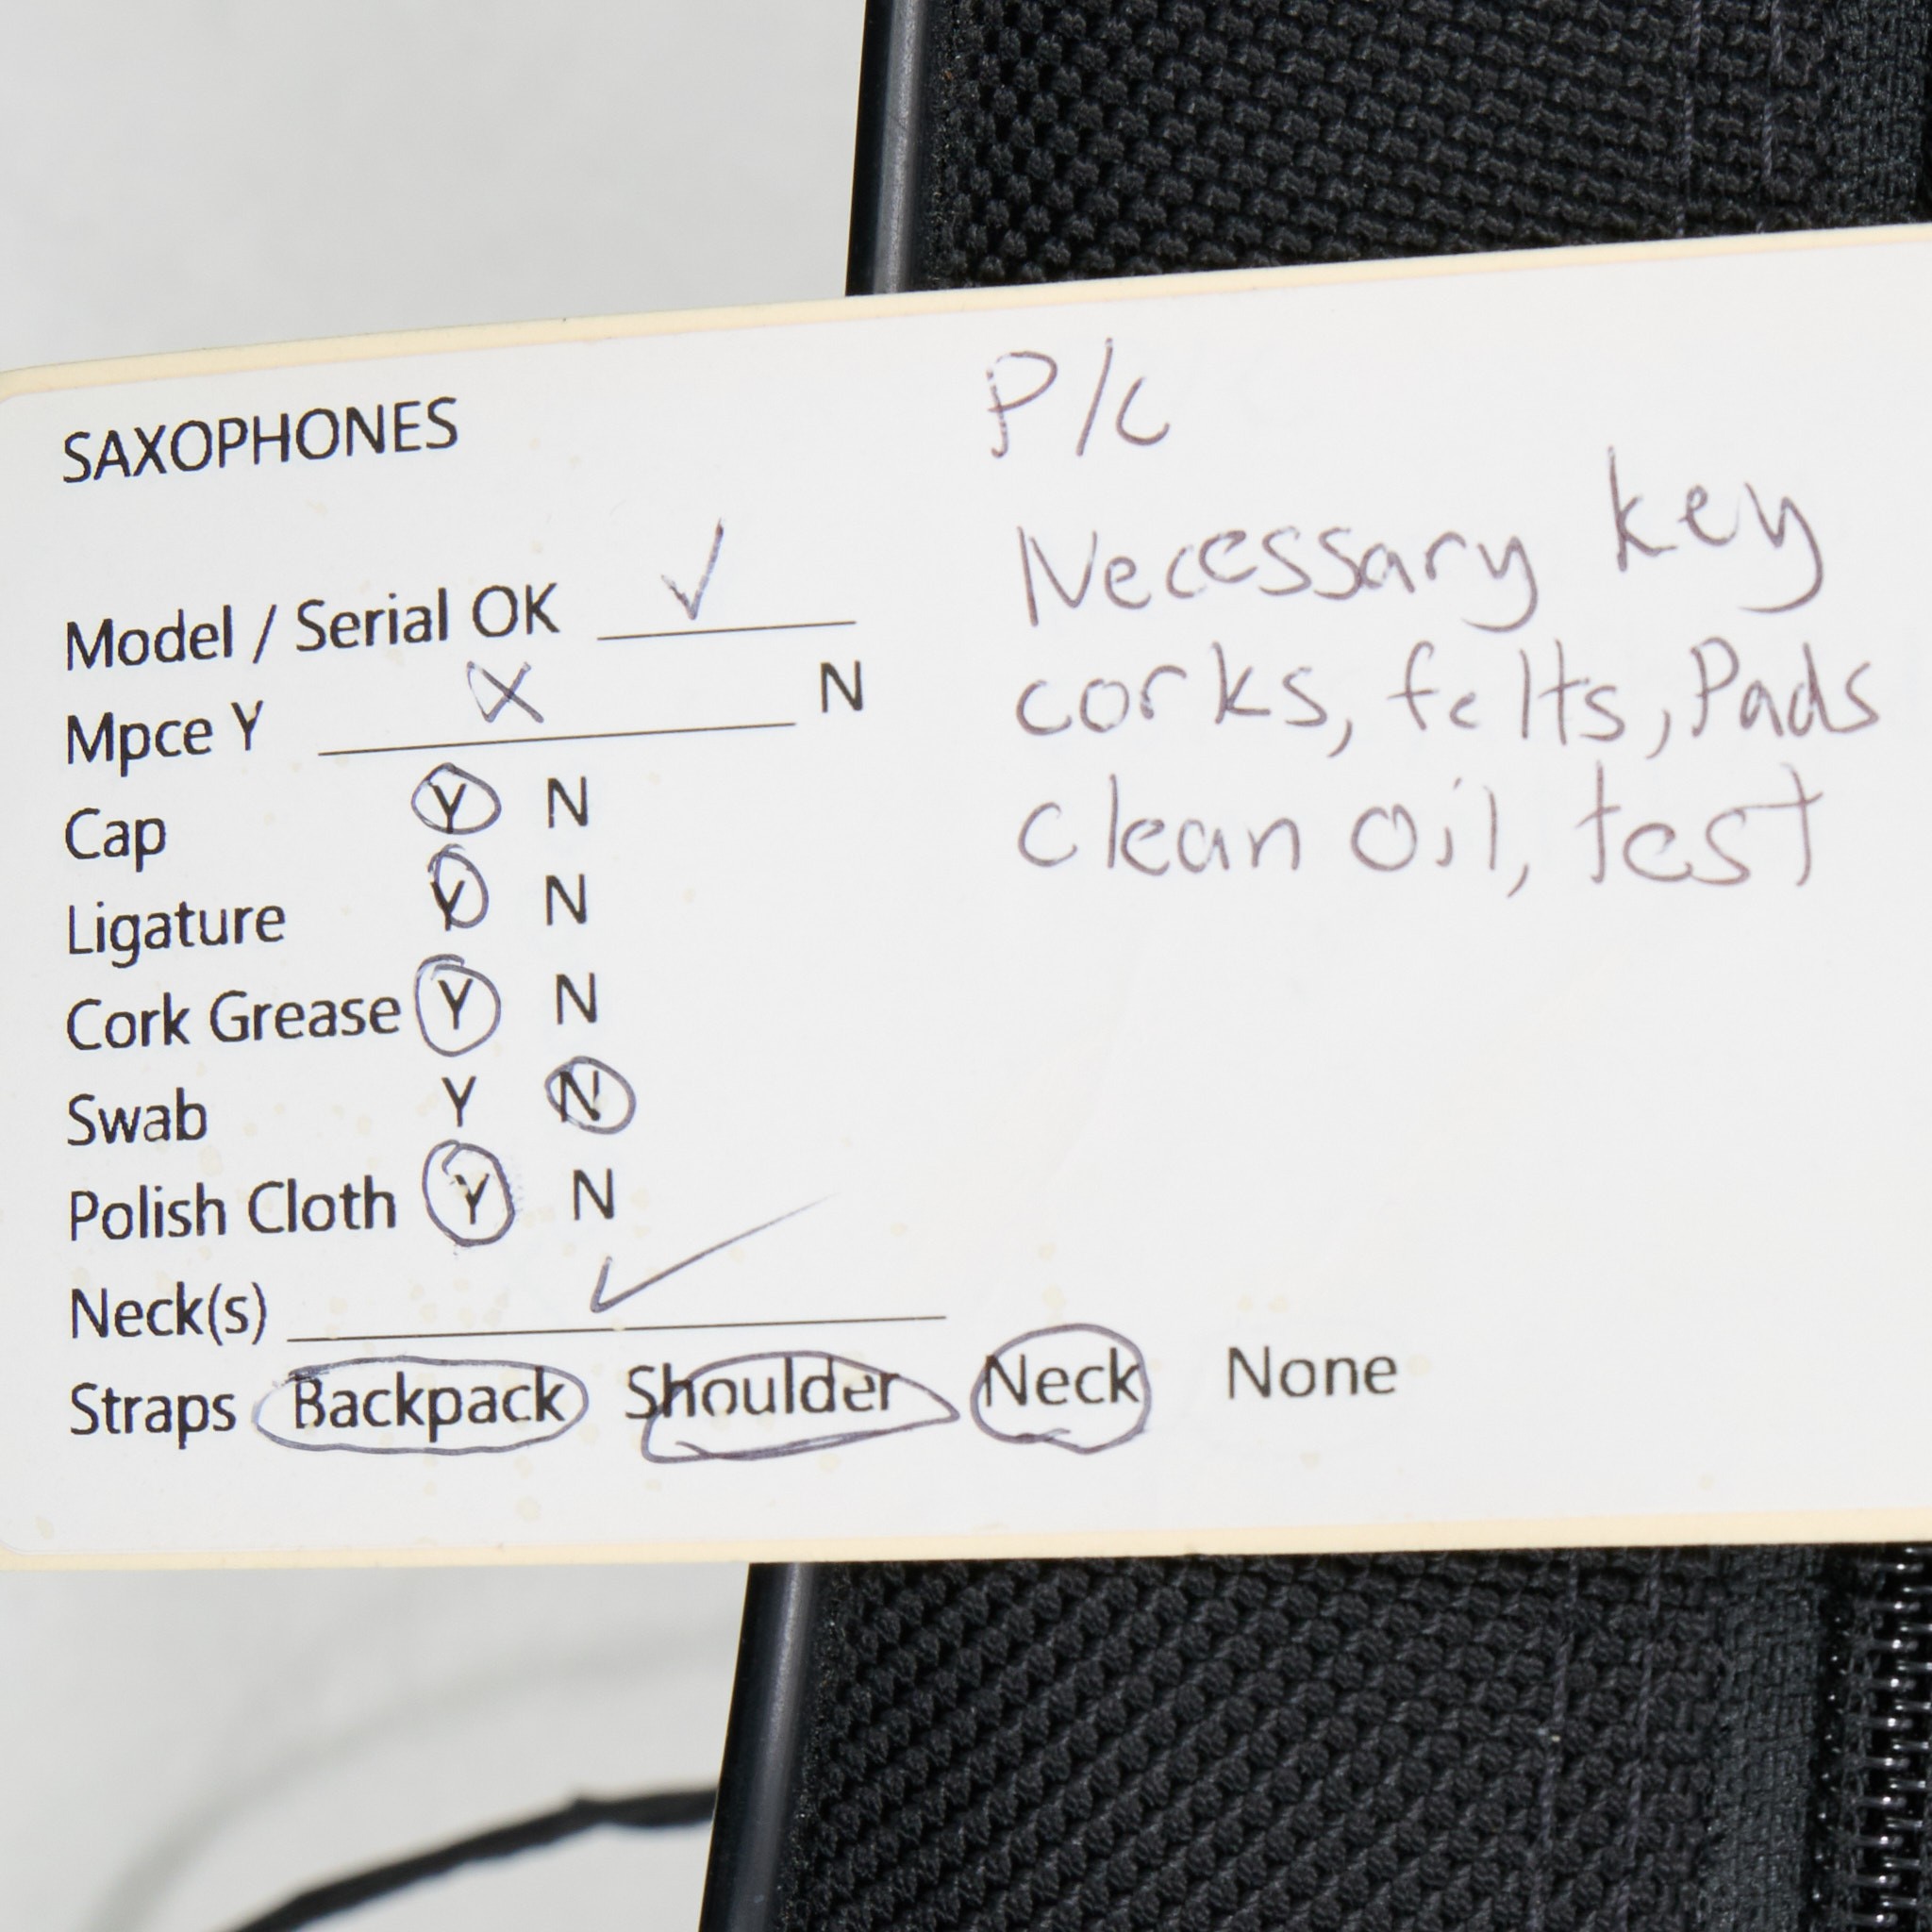 SAXOPHONES
Model / Serial OK ✓
Mpce Y X N
Cap Y N
Ligature Y N
Cork Grease Y N
Swab Y N
Polish Cloth Y N
Neck(s) ✓
Straps Backpack Shoulder Neck None
P/C
Necessary key
corks, felts, Pads
clean oil, test